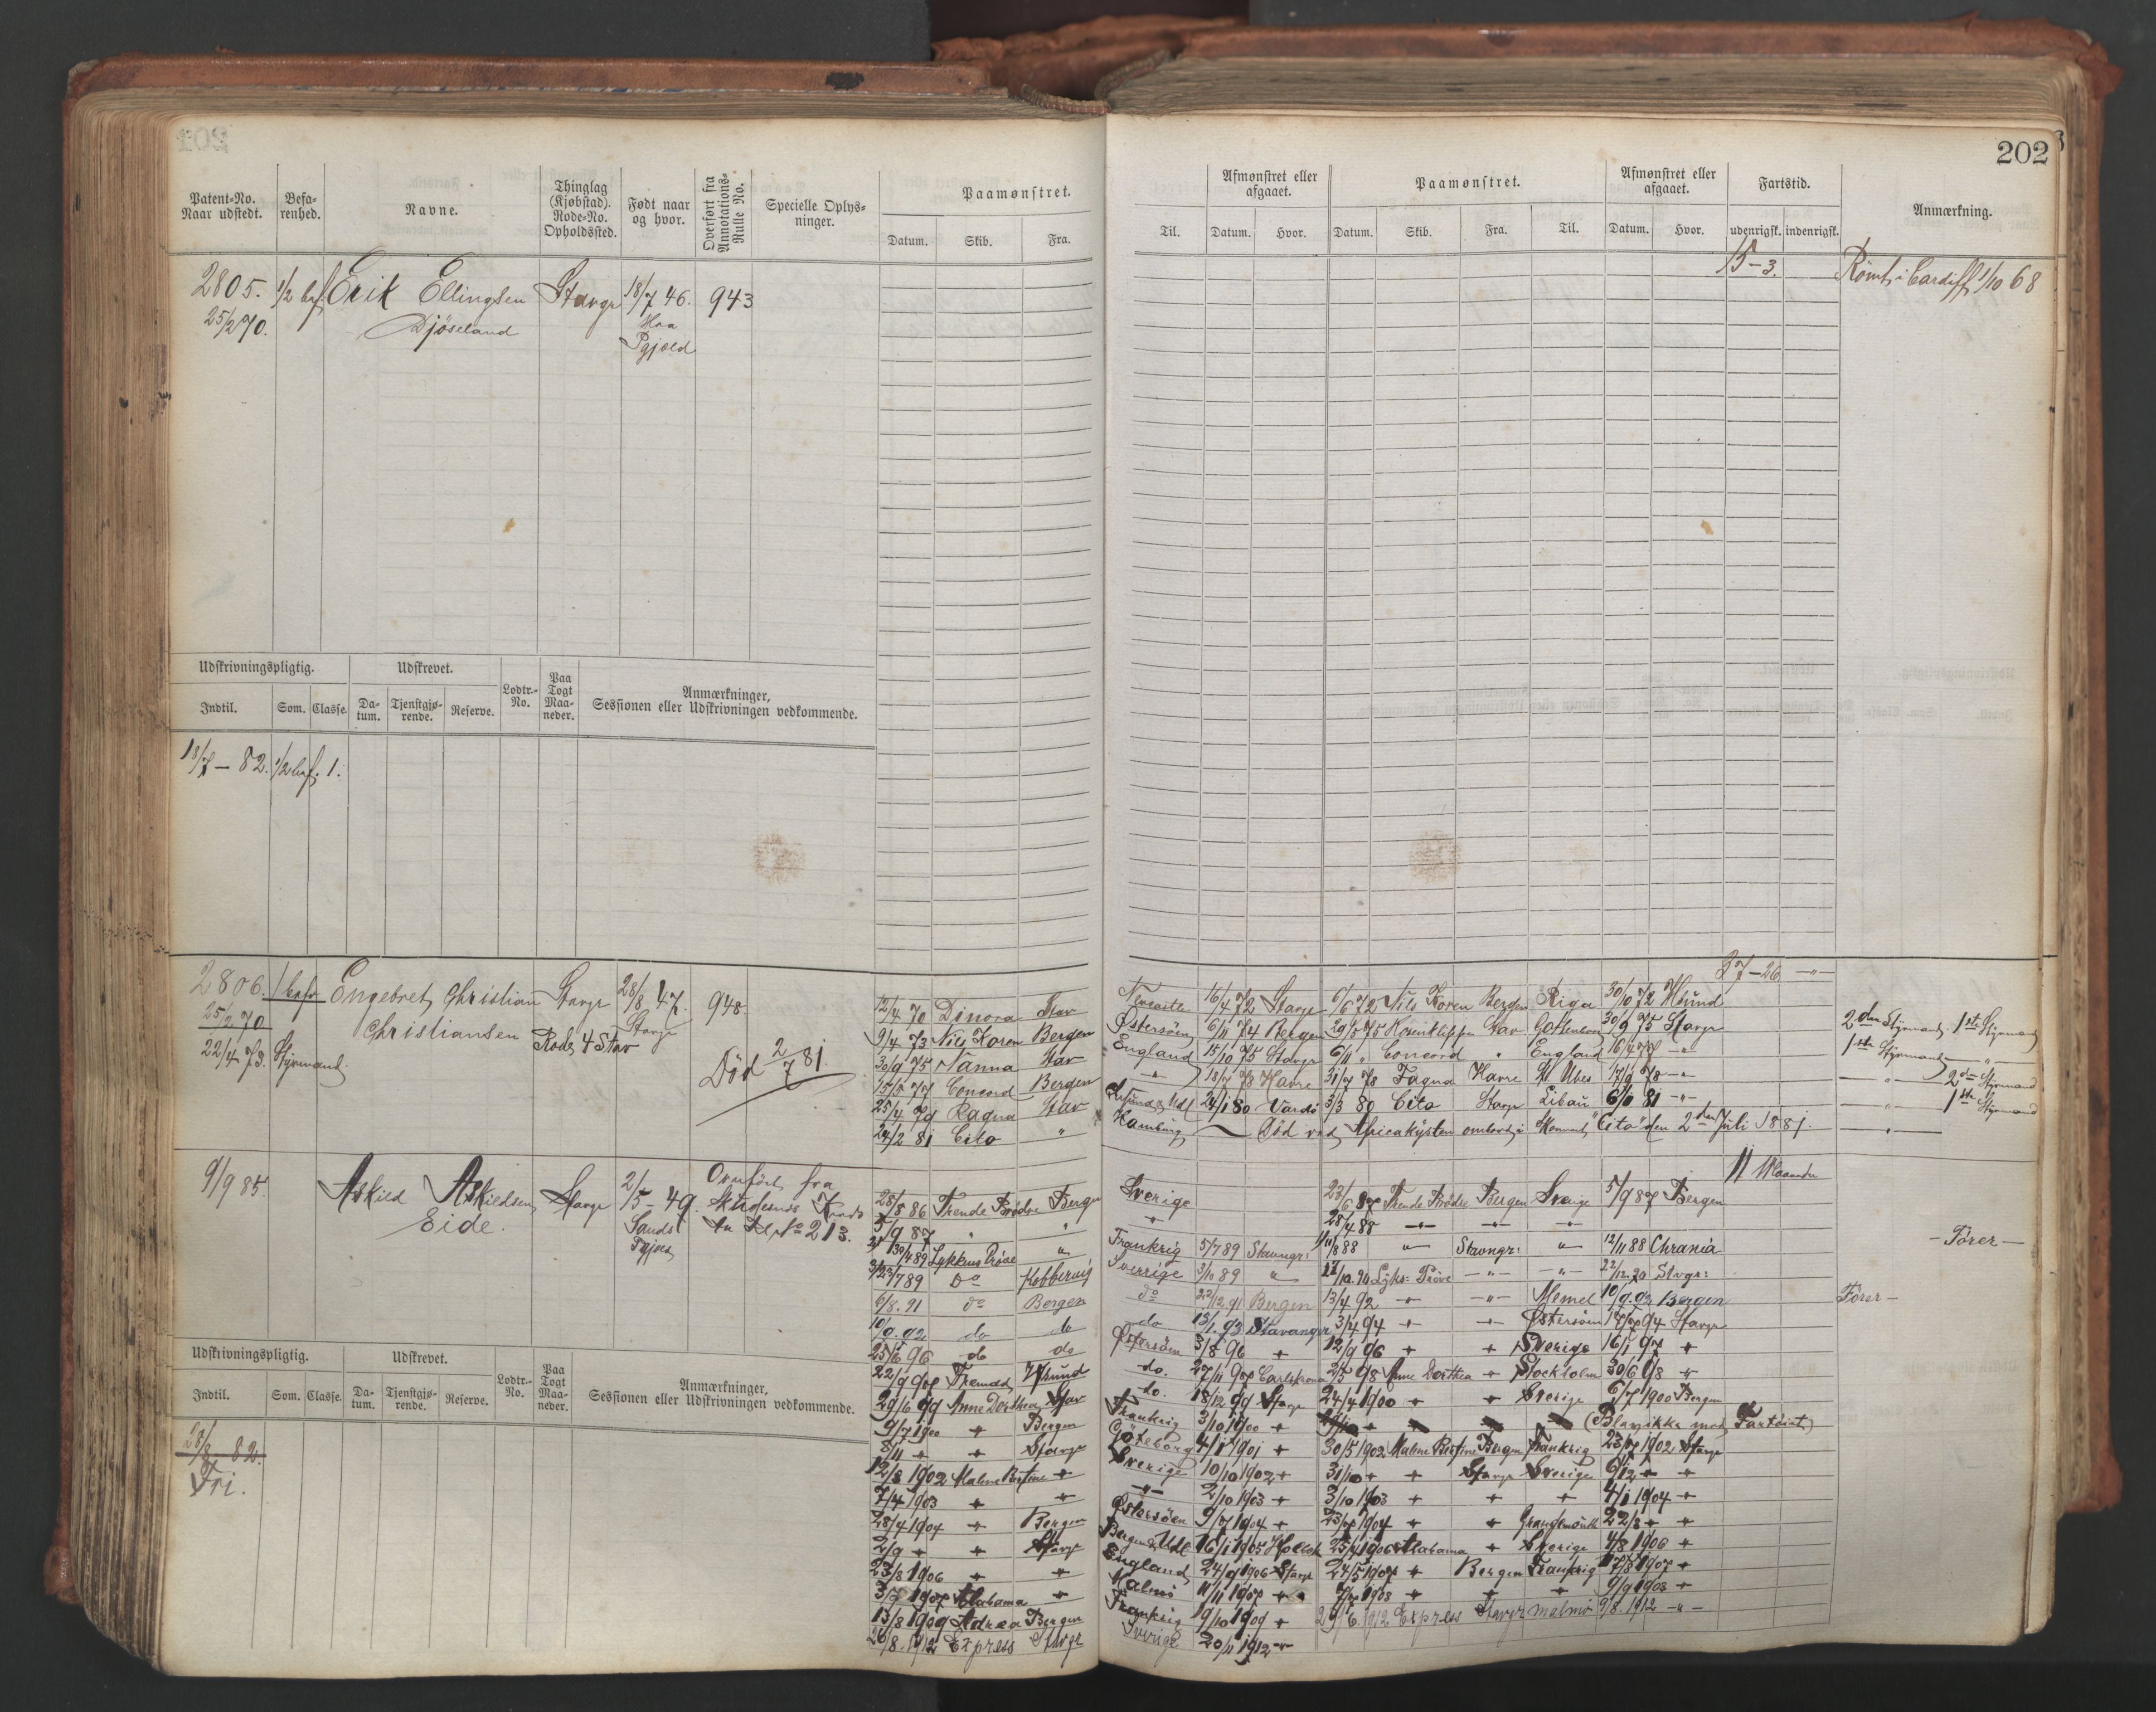 202
Patent-No. Naar udstedt.
Befarenhed.
Navne.
Thinglag (Kjøbstad). Rode-No. Opholdssted.
Født naar og hvor.
Overført fra Annotations-Rulle No.
Specielle Oplysninger.
Paamønstret.
Datum. Skib. Fra. Til.
Afmønstret eller afgaaet.
Datum. Hvor.
Paamønstret.
Datum. Skib. Fra. Til.
Afmønstret eller afgaaet.
Datum. Hvor.
Fartstid.
udenrigsk. indenrigsk.
Anmærkning.
2805. 1/2 bef. Erik Ellingsen Stavgr 18/7 46. 943
25/2 70. Djöseland
15-3. Römt i Cardiff 1/10 68
Udskrivningspligtig. Udskrevet. Lodtr.-No. Paa Togt Maaneder. Anmærkninger, Sessionen eller Udskrivningen vedkommende.
Indtil. Som. Classe. Datum. Tjenstgjørende. Reserve.
18/7 - 82. 1/2 bef. 1.
2806. 1 befr Engebret Christian Stavgr 28/8 47. 948.
25/2 70 Christiansen Rode 4 Stav Stavgr
22/4 73. Styrmand.
Død 2/7 81.
37-26 -"-
12/4 70 Dinora Stav Newcastle 16/4 72 Stavgr 6/6 72 Nils Koren Bergen Riga 30/10 72
9/4 73 Nils Koren Bergen Østersøen 6/11 74 Bergen 29/5 75 Stav Gottenborg 30/9 75 Stavgr 2den Styrmand 1ste Styrmand
30/9 75 Nanna Stav England 15/10 75 Stavgr 6/11 " Concord " England 16/4 77 -"- 1ste Styrmand -"-
15/5 77 Concord Bergen -"- 18/7 78 Havre 31/7 78 Fagna Havre St Ubes 17/9 78 -"- -"- 2den Styrmand
25/4 79 Ragna Stav 24/1 80 Vardö 3/3 80 Cito Stavgr Libau 6/1 81 -"- -"- 1ste Styrmand
24/2 81 Cito " Hamburg Død ved Africakysten ombord i "Cito" den 2den Juli 1881. -"-
9/9 85. Askild Askildsen Eide. Stavgr 2/5-49. Overført fra
No 213.
11 Maaneder
28/8 86 Trende Brødre Bergen Sverige 23/6 87 Trende Brødre Bergen Sverige 5/9 87 Bergen
5/9 87 " " -"- 28/4 88 -"- -"- -"-
Lykkens Prøve " Frankrig 5/7 89 Stavngr: 88 -"- Stavngr: -"- 12/11 88 Chrania -Förer-
89 Do Kobbervig Sverrige 3/10 89 -"- 17/10.90 Lyks: Prøve -"- -"- 22/12.90 Stvgr:
6/8.91 do Bergen do 22/12 91 Bergen 13/4 92 -"- -"- Memel 10/9.92 Bergen Förer-
10/9.92 do do do 13/1.93 Stavanger 3/4 94 -"- -"- Østersøen 94 Stavgr
25/6 96 do do Østersøen 3/8 96 " 12/9 96 " " Sverige 16/1 97 "
22/9 97 Fremad do. 27/11 97 Carlskrona 2/5 98 Anne Dorthea " Stockholm 30/6 98 "
29/6 99 Anne Dorthea Stav do. 18/12 99 Stavgr 24/4 1900 " " Sverige 6/7 1900 Bergen
9/7 1900 " Bergen Frankrig 3/10 1900 " med Fartöiet)
8/11 " " Stavgr Göteborg 4/1 1901 " 30/5 1902 Malene Bertine Bergen Frankrig 23/7 1902 Stavgr
12/8 1902 Malene Bertine " Sverige 10/10 1902 " 31/10 " " Stavgr Sverige 6/12 " "
7/4 1903 " " -"- 2/10 1903 " 3/10 1903 " " " 4/1 1904 "
28/4 1904 " Bergen Østersøen 9/7 1904 " 23/7 1904 " " Grangemouth 22/8 " "
2/9 " " Stavgr Bergen & Udl 16/1 1905 25/4 1906 Alabama " Sverige 4/8 1906 "
23/8 1906 " " England 24/9 1906 Stavgr 24/5 1907 " Bergen Frankrig 17/8 1907 "
1907 Alabama " Malmö 11/11 1907 " 1908 " " " 9/9 1908 "
13/8 1909 Adrea Bergen Frankrig 19/10 1909 " 29/6.1912 Express Stavgr Malmö 9/8.1912 -"-
26/8.1912 Express Stvgr Sverige 20/11 1912 "
Udskrivningspligtig. Udskrevet. Lodtr.-No. Paa Togt Maaneder. Anmærkninger, Sessionen eller Udskrivningen vedkommende.
Indtil. Som. Classe. Datum. Tjenstgjørende. Reserve.
28/8 82.
Fri.